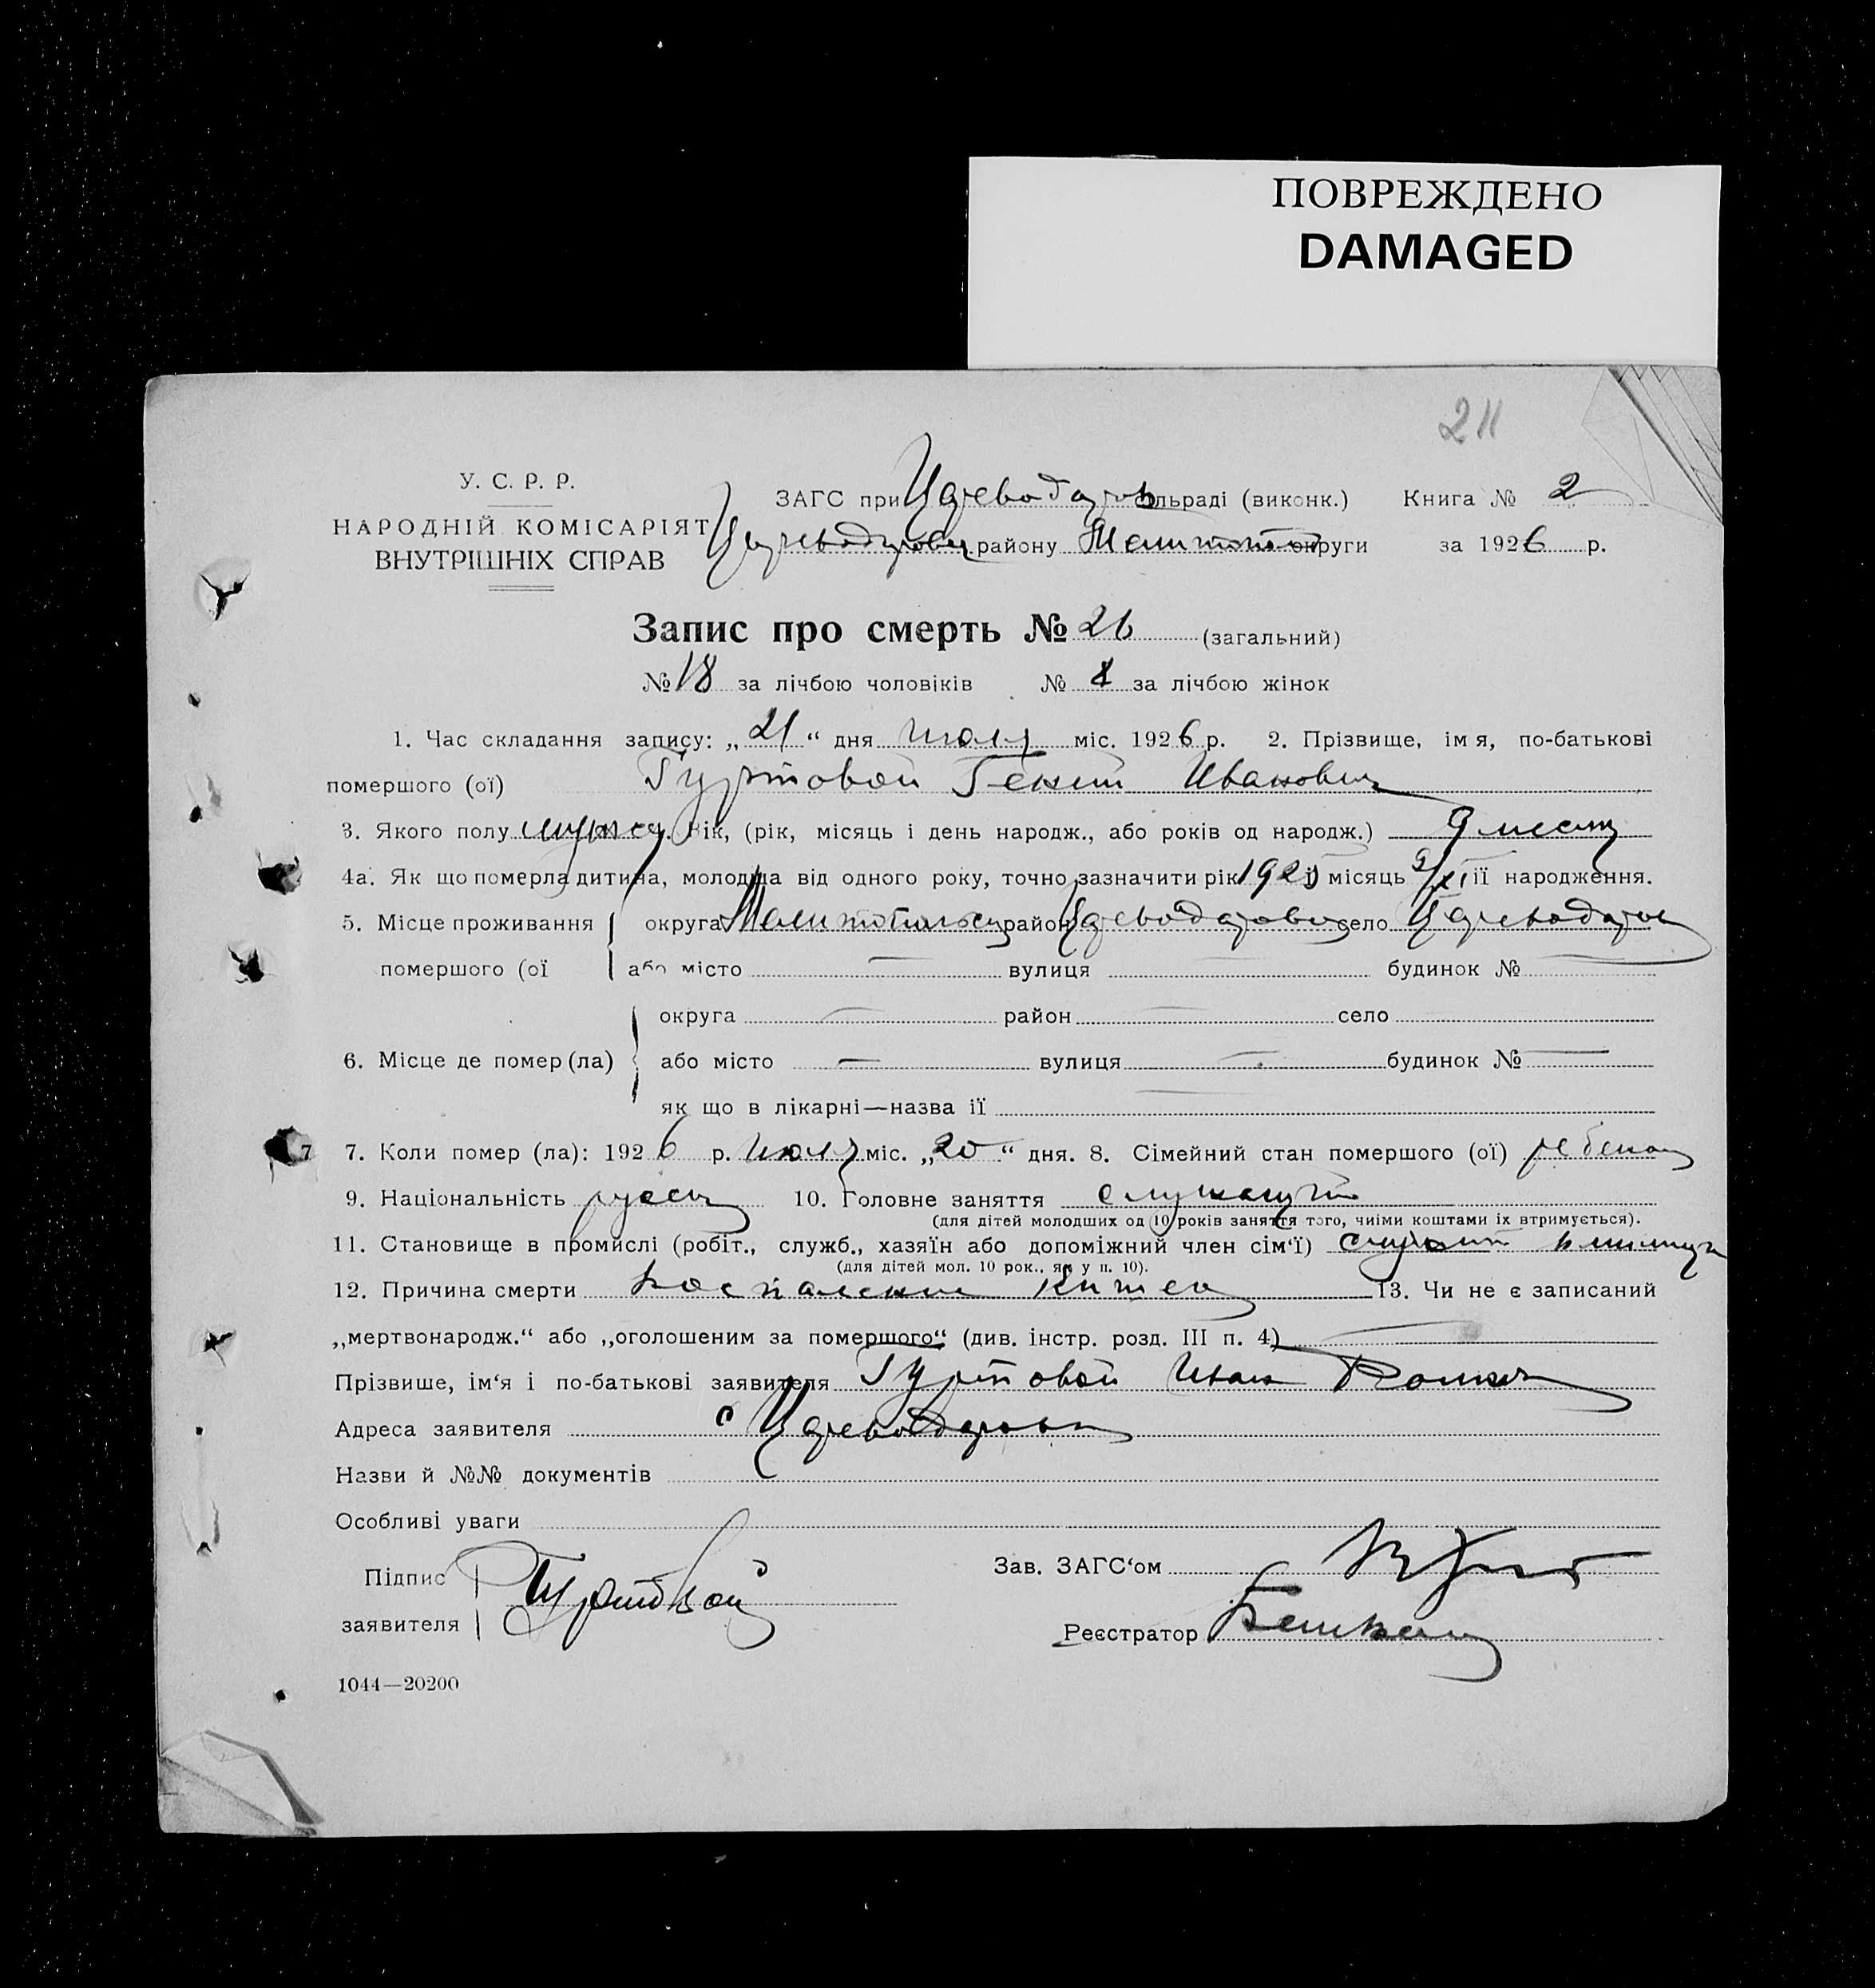 ПОВРЕЖДЕНО
DAMAGED
211
У. С. Р. Р.
НАРОДНІЙ КОМІСАРІЯТ
ВНУТРІШНІХ СПРАВ
ЗАГС при Цареводаров сільраді (виконк.) Книга № 2
району Мелитоп округи за 1926 р.
Запис про смерть № 26 (загальний)
№ 18 за лічбою чоловіків № 8 за лічбою жінок
1. Час складання запису: „21“ дня июля міс. 1926 р. 2. Прізвище, імя, по-батькові
помершого (ої) Гуртовой Генит Иванович
3. Якого полу мужск. Вік, (рік, місяць і день народж., або років од народж.) 9 месяц
4а. Як що померла дитина, молодша від одного року, точно зазначити рік 1925 і місяць 9/XI її народження.
5. Місце проживання округа Мелитопольск район село
помершого (ої або місто — вулиця — будинок № —
округа — район — село
6. Місце де помер (ла) або місто — вулиця — будинок № —
як що в лікарні—назва її —
7 7. Коли помер (ла): 1926 р. июля міс. „20“ дня. 8. Сімейний стан помершого (ої) ребенок
9. Національність русск 10. Головне заняття служащий
(для дітей молодших од 10 років заняття того, чиїми коштами їх втримується).
11. Становище в промислі (робіт., служб., хазяїн або допоміжний член сім‘ї) служит
(для дітей мол. 10 рок., як у п. 10).
12. Причина смерти воспаление кишек 13. Чи не є записаний
„мертвонародж.“ або „оголошеним за помершого“ (див. інстр. розд. III п. 4) —
Прізвище, ім‘я і по-батькові заявителя Гуртовой Иван
Адреса заявителя с
Назви й №№ документів
Особливі уваги
Підпис
заявителя Гуртовой
Зав. ЗАГС‘ом
Реєстратор
1044—20200